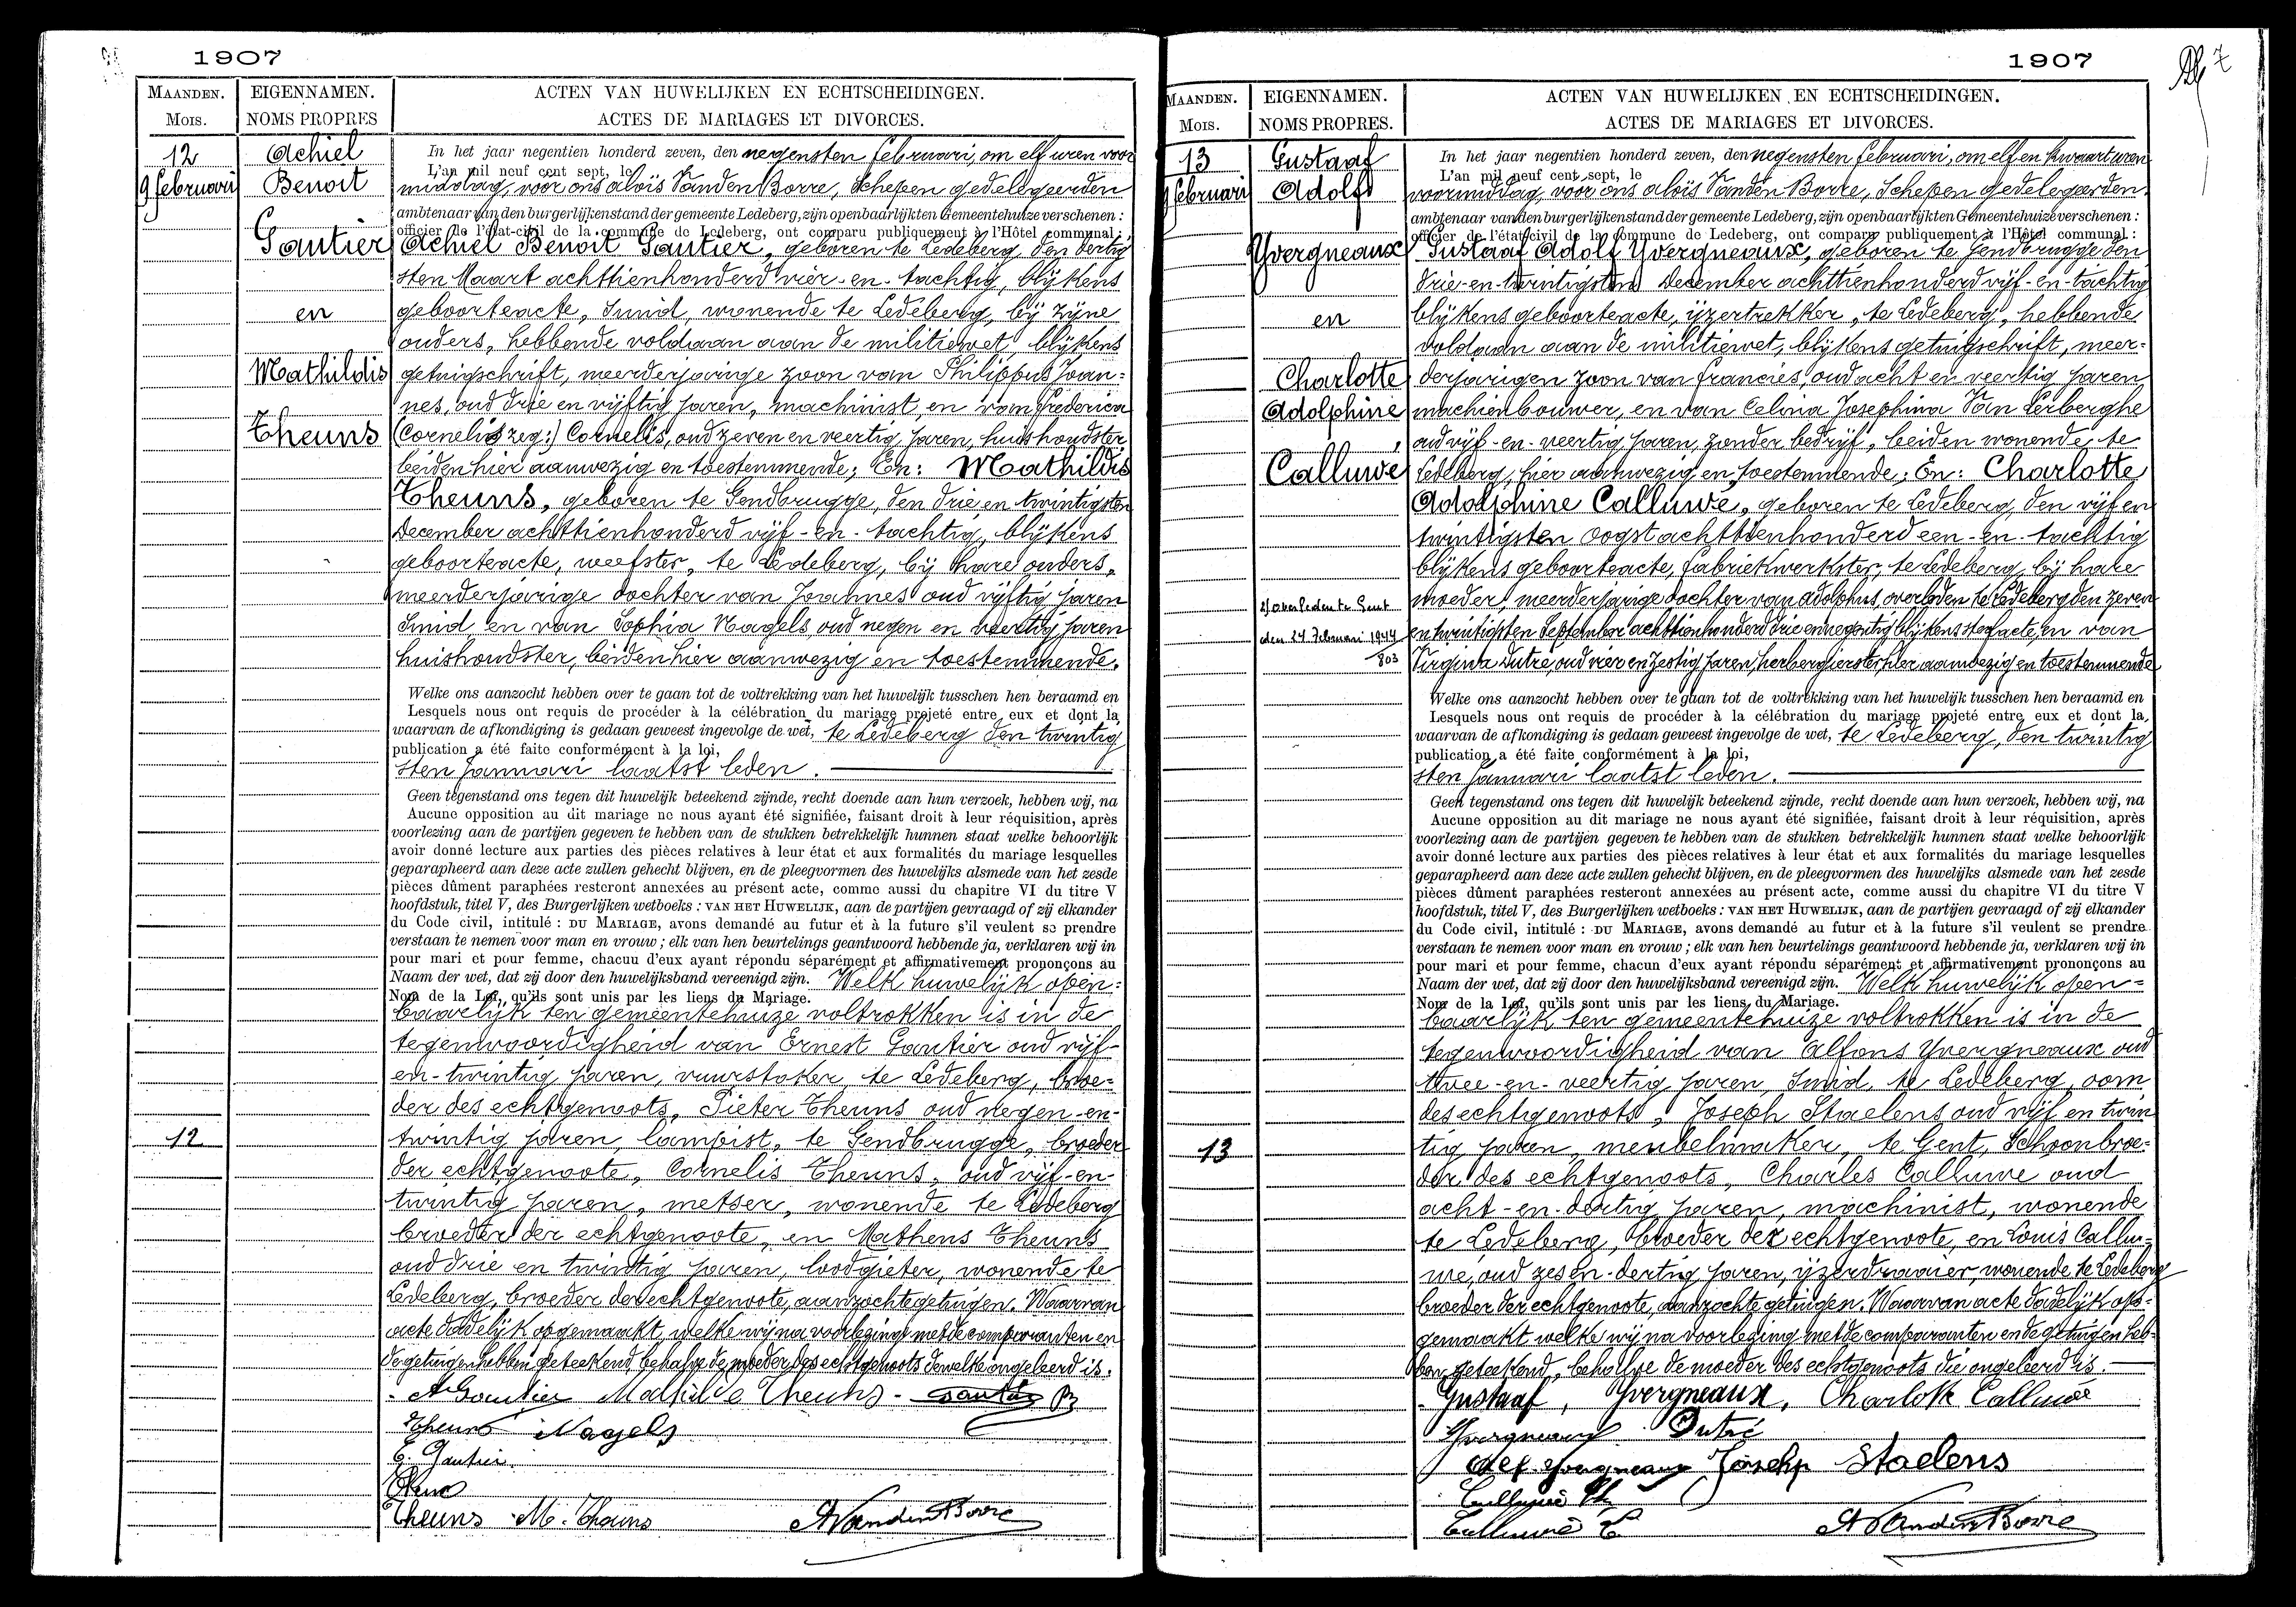 1907
MAANDEN. EIGENNAMEN. ACTEN VAN HUWELIJKEN EN ECHTSCHEIDINGEN.
Mois. NOMS PROPRES ACTES DE MARIAGES ET DIVORCES.
12
9 februari
Achiel
Benoit
Gautier
en
Mathildis
Theuns
12
In het jaar negentien honderd zeven, den negensten februari, om elf uren voor
L'an mil neuf cent sept, le
middag, voor ons aloïs Vanden Borre, Schepen gedelegeerden
ambtenaar van den burgerlijkenstand der gemeente Ledeberg, zijn openbaarlijk ten Gemeentehuize verschenen :
officier de l'état-civil de la commune de Ledeberg, ont comparu publiquement à l'Hôtel communal :
Achiel Benoit Gautier, geboren te Ledeberg, den dertig
sten Maart achttienhonderd vier-en-tachtig, blijkens
geboorteacte, Smid, wonende te Ledeberg, bij zijne
ouders, hebbende voldaan aan de militiewet, blijkens
getuigschrift, meerderjarige zoon van Philippus Joan=
nes, oud drie en vijftig jaren, machinist, en van frederica
(Cornelis zeg:) Cornelis, oud zeven en veertig jaren, huishoudster
beiden hier aanwezig en toestemmende; En: Mathildis
Theuns, geboren te Gendbrugge, den drie en twintigsten
December achttienhonderd vijf-en-tachtig, blijkens
geboorteacte, weefster, te Ledeberg, bij hare ouders,
meerderjarige dochter van Joannes oud vijftig jaren
Smid en van Sophia Nagels, oud negen en veertig jaren
huishoudster, beiden hier aanwezig en toestemmende.
Welke ons aanzocht hebben over te gaan tot de voltrekking van het huwelijk tusschen hen beraamd en
Lesquels nous ont requis de procéder à la célébration du mariage projeté entre eux et dont la
waarvan de afkondiging is gedaan geweest ingevolge de wet, te Ledeberg den twintig
publication a été faite conformément à la loi,
sten Januari laatst leden.
Geen tegenstand ons tegen dit huwelijk beteekend zijnde, recht doende aan hun verzoek, hebben wij, na
Aucune opposition au dit mariage ne nous ayant été signifiée, faisant droit à leur réquisition, après
voorlezing aan de partijen gegeven te hebben van de stukken betrekkelijk hunnen staat welke behoorlijk
avoir donné lecture aux parties des pièces relatives à leur état et aux formalités du mariage lesquelles
geparapheerd aan deze acte zullen gehecht blijven, en de pleegvormen des huwelijks alsmede van het zesde
pièces dûment paraphées resteront annexées au présent acte, comme aussi du chapitre VI du titre V
hoofdstuk, titel V, des Burgerlijken wetboeks : VAN HET HUWELIJK, aan de partijen gevraagd of zij elkander
du Code civil, intitulé : DU MARIAGE, avons demandé au futur et à la future s'il veulent se prendre
verstaan te nemen voor man en vrouw ; elk van hen beurtelings geantwoord hebbende ja, verklaren wij in
pour mari et pour femme, chacuu d'eux ayant répondu séparément et affirmativement prononçons au
Naam der wet, dat zij door den huwelijksband vereenigd zijn. Welk huwelijk open=
Nom de la Loi, qu'ils sont unis par les liens du Mariage.
baarlijk ten gemeentehuize voltrokken is in de
tegenwoordigheid van Ernest Gautier oud vijf-
en-twintig jaren, vuurstoker, te Ledeberg, broe=
der des echtgenoots, Pieter Theuns oud negen-en-
twintig jaren, lampist, te Gendbrugge, broeder
der echtgenoote, Cornelis Theuns, oud vijf-en-
twintig jaren, metser, wonende te Ledeberg
broeder der echtgenoote, en Matheus Theuns
oud drie en twintig jaren, loodgieter, wonende te
Ledeberg, broeder der echtgenoote, aanzochte getuigen. Waarvan
acte dadelijk opgemaakt, welke wij na voorlezing met de comparanten en
de getuigen hebben geteekend behalve de moeder des echtgenoots dewelke ongeleerd is.
A Gautier Mathilde Theuns Gautier
Theuns Nagels
E. Gautier
Theuns M. Theuns A Vanden Borre
1907
7
MAANDEN. EIGENNAMEN. ACTEN VAN HUWELIJKEN EN ECHTSCHEIDINGEN.
Mois. NOMS PROPRES. ACTES DE MARIAGES ET DIVORCES.
13
9 februari
Gustaaf
Adolf
Yvergneaux
en
Charlotte
Adolphine
Calluwé
overleden te Gent
den 24 Februari 1944
803
13
In het jaar negentien honderd zeven, den negensten februari, om elf en kwaart uren
L'an mil neuf cent sept, le
voormiddag, voor ons aloïs Vanden Borre, Schepen gedelegeerden
ambtenaar van den burgerlijkenstand der gemeente Ledeberg, zijn openbaarlijk ten Gemeentehuize verschenen :
officier de l'état-civil de la commune de Ledeberg, ont comparu publiquement à l'Hôtel communal :
Gustaaf Adolf Yvergneaux, geboren te Gendbrugge den
drie-en-twintigsten December achttienhonderd vijf-en-tachtig
blijkens geboorteacte, ijzertrekker, te Ledeberg, hebbende
voldaan aan de militiewet, blijkens getuigschrift, meer=
derjarigen zoon van francies, oud acht en veertig jaren
machienbouwer, en van Celina Josephina Van Lerberghe
oud vijf-en-veertig jaren, zonder bedrijf, beiden wonende te
Ledeberg, hier aanwezig en toestemmende; En: Charlotte
Adolphine Calluwé, geboren te Ledeberg, den vijf en
twintigsten oogst achttienhonderd een-en-tachtig
blijkens geboorteacte, fabriekwerkster, te Ledeberg, bij hare
moeder, meerderjarige dochter van Adolphus, overleden te Ledeberg den zeven
en twintigsten September achttienhonderd drie en negentig blijkens sterfacte, en van
Virginia Dutré, oud vier en zestig jaren, herbergierster, hier aanwezig en toestemmende
Welke ons aanzocht hebben over te gaan tot de voltrekking van het huwelijk tusschen hen beraamd en
Lesquels nous ont requis de procéder à la célébration du mariage projeté entre eux et dont la
waarvan de afkondiging is gedaan geweest ingevolge de wet, te Ledeberg, den twintig
publication a été faite conformément à la loi,
sten Januari laatst leden.
Geen tegenstand ons tegen dit huwelijk beteekend zijnde, recht doende aan hun verzoek, hebben wij, na
Aucune opposition au dit mariage ne nous ayant été signifiée, faisant droit à leur réquisition, après
voorlezing aan de partijen gegeven te hebben van de stukken betrekkelijk hunnen staat welke behoorlijk
avoir donné lecture aux parties des pièces relatives à leur état et aux formalités du mariage lesquelles
geparapheerd aan deze acte zullen gehecht blijven, en de pleegvormen des huwelijks alsmede van het zesde
pièces dûment paraphées resteront annexées au présent acte, comme aussi du chapitre VI du titre V
hoofdstuk, titel V, des Burgerlijken wetboeks : VAN HET HUWELIJK, aan de partijen gevraagd of zij elkander
du Code civil, intitulé : DU MARIAGE, avons demandé au futur et à la future s'il veulent se prendre
verstaan te nemen voor man en vrouw ; elk van hen beurtelings geantwoord hebbende ja, verklaren wij in
pour mari et pour femme, chacun d'eux ayant répondu séparément et affirmativement prononçons au
Naam der wet, dat zij door den huwelijksband vereenigd zijn. Welk huwelijk open=
Nom de la Loi, qu'ils sont unis par les liens du Mariage.
baarlijk ten gemeentehuize voltrokken is in de
tegenwoordigheid van Alfons Yvergneaux oud
twee-en-veertig jaren, Smid, te Ledeberg, oom
des echtgenoots, Joseph Staelens oud vijf en twin
tig jaren, meubelmaker, te Gent, Schoonbroe=
der des echtgenoots, Charles Calluwe oud
acht-en-dertig jaren, machinist, wonende
te Ledeberg, broeder der echtgenoote, en Louis Callu=
wé, oud zes en-dertig jaren, ijzerdraaier, wonende te Ledeberg
broeder der echtgenoote, aanzochte getuigen. Waarvan acte dadelijk op=
gemaakt welke wij na voorlezing met de comparanten en de getuigen heb=
ben geteekend, behalve de moeder des echtgenoots die ongeleerd is.
Gustaaf, Yvergneaux, Charlotte Calluwé
Yvergneaux Dutré
Alf. Yvergneaux Joseph Staelens
Calluwé Ch
Calluwé L A Vanden Borre